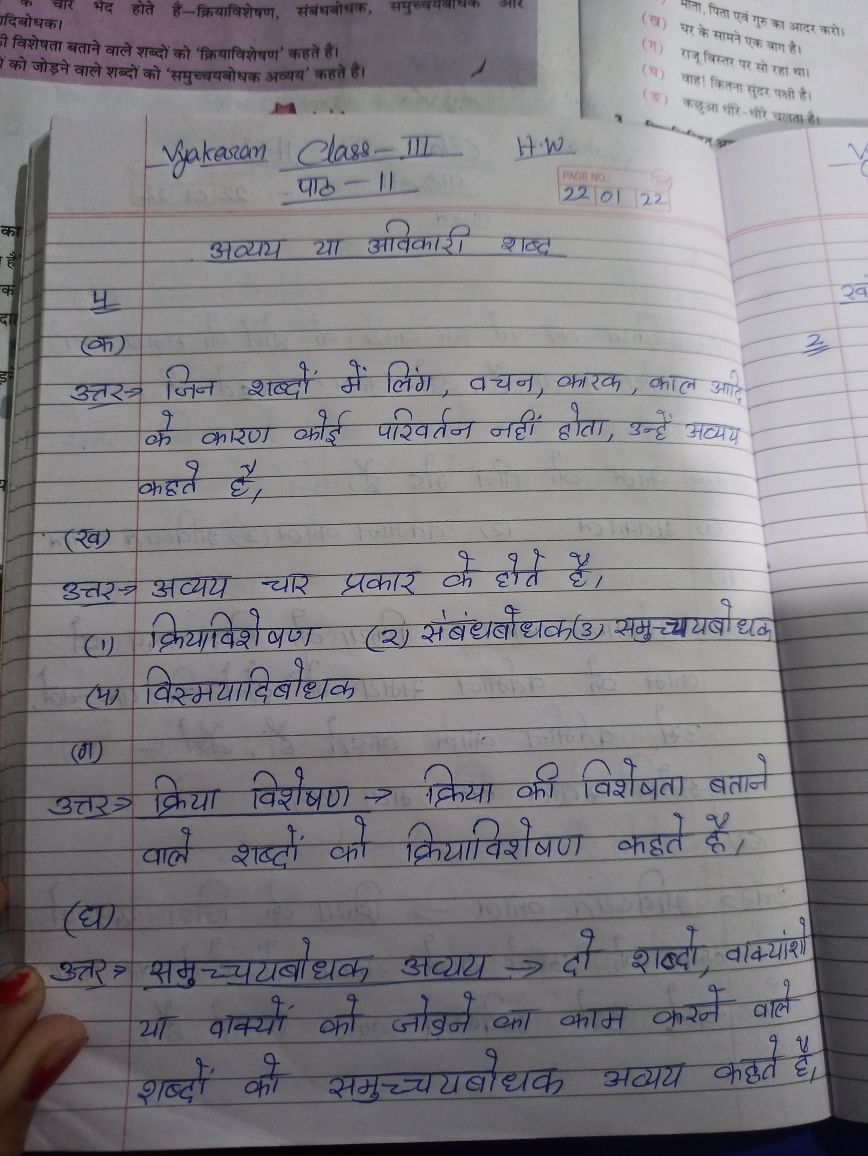 के चार भेद होते हैं–क्रियाविशेषण, संबंधबोधक, समुच्चयबोधक और
दिबोधक।
विशेषता बताने वाले शब्दों को 'क्रियाविशेषण' कहते हैं।
को जोड़ने वाले शब्दों को 'समुच्चयबोधक अव्यय' कहते हैं।
माता, पिता एवं गुरु का आदर करो।
(ख) घर के सामने एक बाग है।
(ग) राजू बिस्तर पर सो रहा था।
(घ) वाह! कितना सुंदर पक्षी है।
(ङ) कछुआ धीरे-धीरे चलता है।
Vyakaran Class-III H.W
पाठ-11
PAGE NO:
22 01 22
अव्यय या अविकारी शब्द
4
(क)
उत्तर→ जिन शब्दों में लिंग, वचन, कारक, काल आदि
के कारण कोई परिवर्तन नहीं होता, उन्हें अव्यय
कहते है,
(ख)
उत्तर→ अव्यय चार प्रकार के होते है,
(1) क्रियाविशेषण (2) संबंधबोधक (3) समुच्चयबोधक
(4) विस्मयादिबोधक
(ग)
उत्तर→ क्रिया विशेषण → क्रिया की विशेषता बताने
वाले शब्दों को क्रियाविशेषण कहते है,
(घ)
उत्तर→ समुच्चयबोधक अव्यय → दो शब्दो, वाक्यांशो
या वाक्यों को जोड़ने का काम करने वाले
शब्दों को समुच्चयबोधक अव्यय कहते है,
2